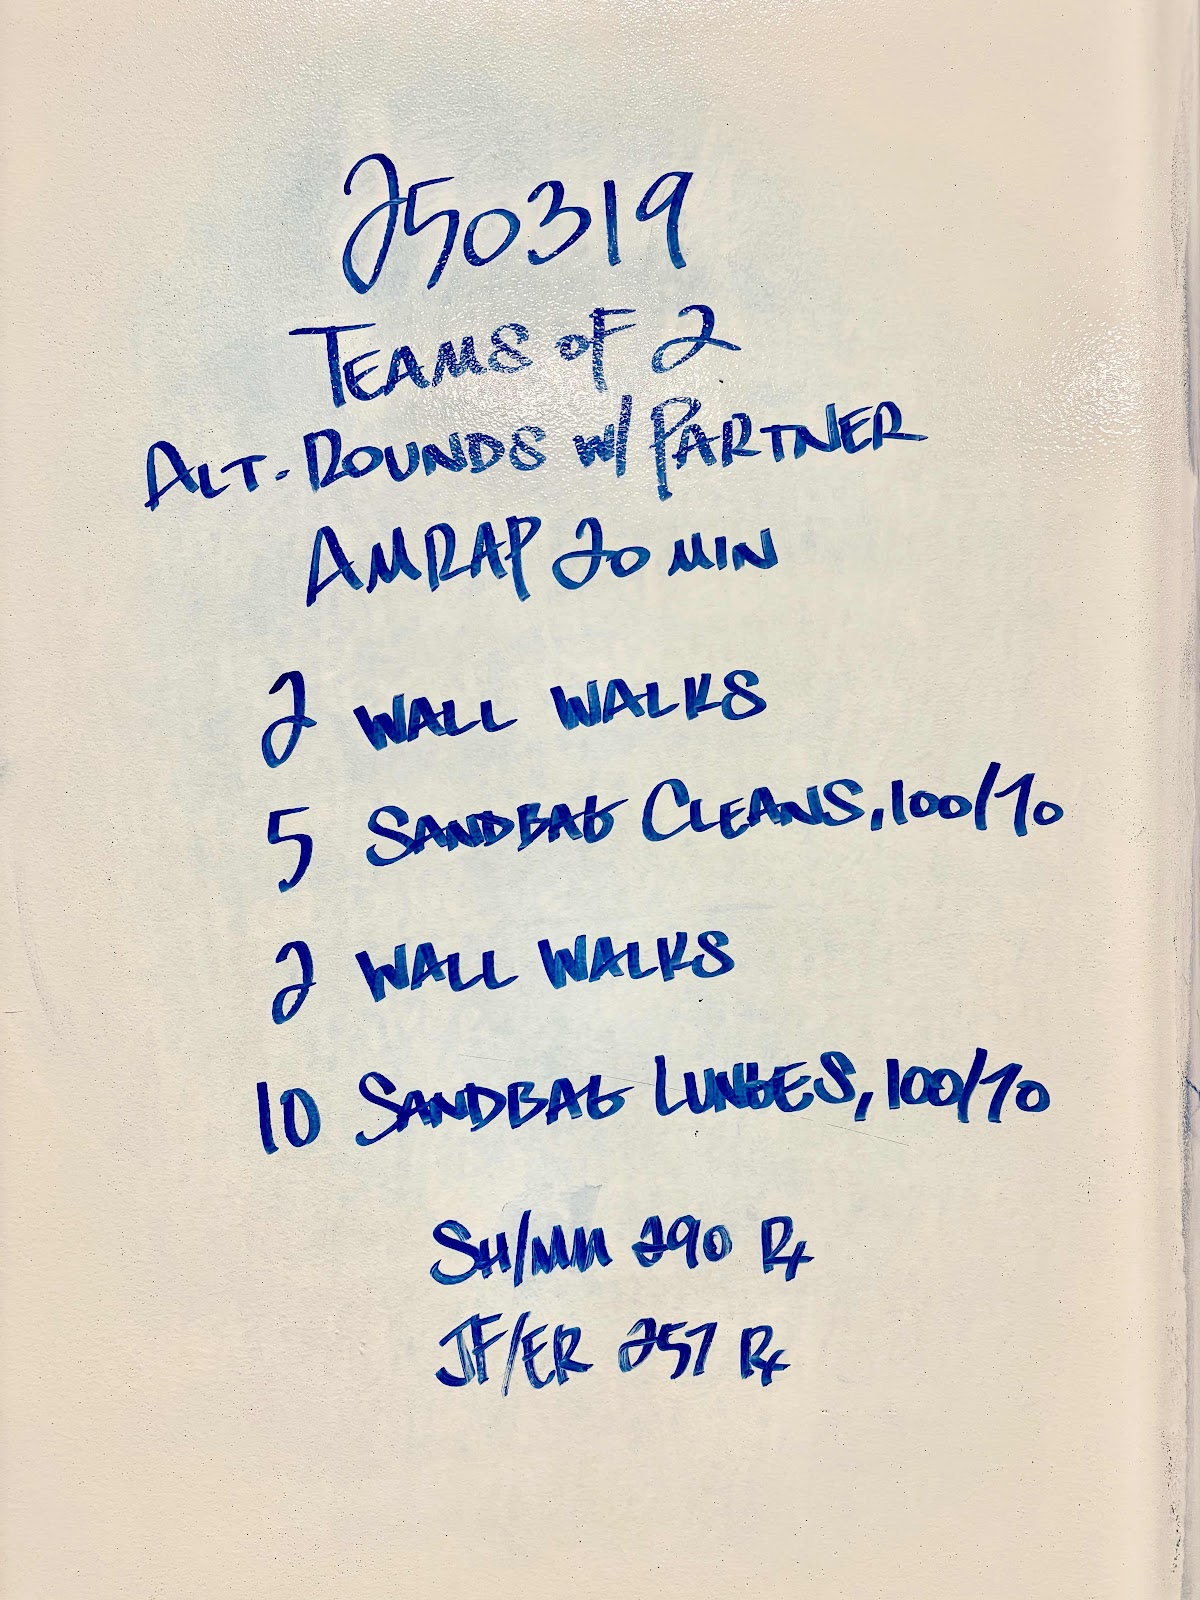 250319
TEAMS OF 2
ALT. ROUNDS W/ PARTNER
AMRAP 20 MIN
2 WALL WALKS
5 SANDBAG CLEANS, 100/70
2 WALL WALKS
10 SANDBAG LUNGES, 100/70
SH/MM 290 Rx
JF/ER 257 Rx